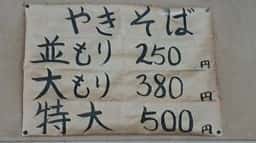 やきそば
並もり 250円
大もり 380円
特大 500円